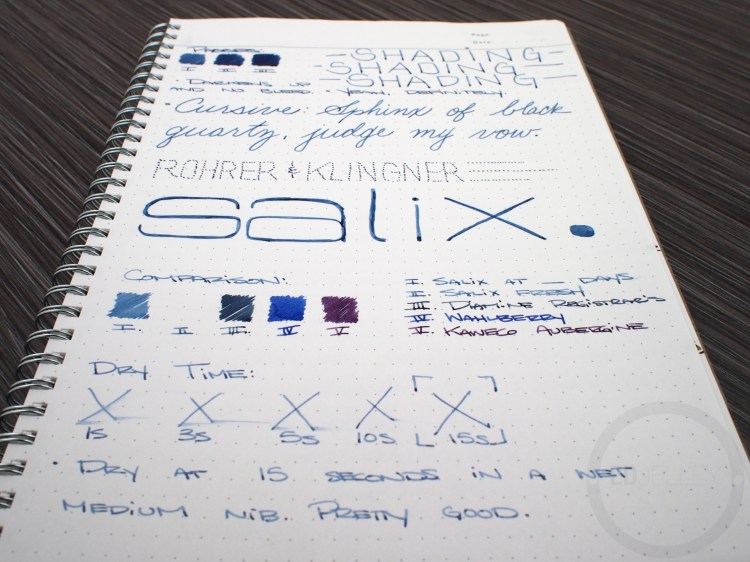 Page:
Date:
Phases:
I II III
-SHADING-
-SHADING-
-SHADING-
· Darkens up
and no bleed. · Yeah, definitely.
· Cursive: Sphinx of black
quartz, judge my vow.
ROHRER & KLINGNER
salix.
Comparison:
I. II. III. IV V
I. Salix at __ Days
II. Salix Fresh
III. Diamine Registrar's
IV. Wahlberry
V. Kaweco Aubergine
Dry Time:
1s 3s 5s 10s 15s
· Dry at 15 seconds in a wet
medium nib. Pretty good.